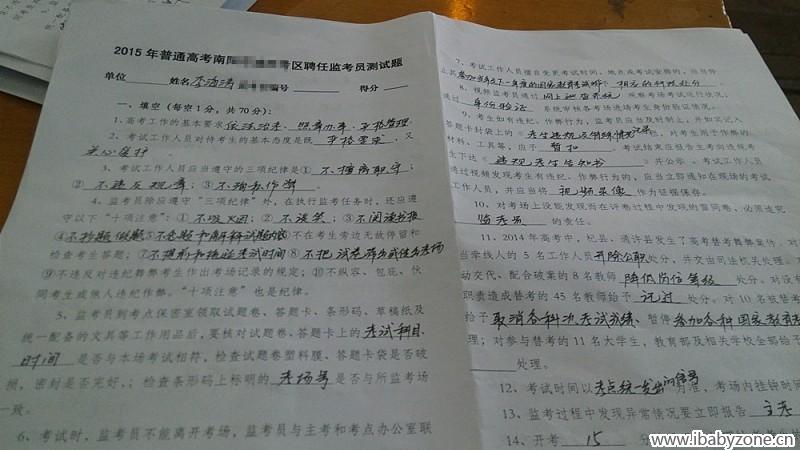 2015年普通高考南 区聘任监考员测试题
单位 姓名 李海涛 编号 得分
一、填空(每空1分,共70分):
1、高考工作的基本要求依法治考、照章办事、严格管理.
2、考试工作人员对待考生的基本态度是既 严格要求 、又
关心爱护 。
3、考试工作人员应当遵守的三项纪律是① 不擅离职守 ;
② 不违反规章 ;③不徇私作弊 。
4、监考员除应遵守“三项纪律”外,在执行监考任务时,还应遵
守以下“十项注意”:① 不吸烟 ;② 不谈笑 ;③不阅读书报
④不抄题做题⑤不念题和解释试题 ⑥不在考生旁边无故停留和
检查考生答题;⑦不提前和拖延考试时间⑧不把试卷 考场
⑨不违反对违纪舞弊考生作出考场记录的规定;⑩不纵容、包庇、伙
同考生或他人违纪作弊。“十项注意”也是纪律。
5、监考员到考点保密室领取试题卷、答题卡、条形码、草稿纸及
统一配备的文具等工作用品后,要核对试题卷、答题卡上的考试科目、
时间 是否与本场考试相符,检查试题卷塑料膜、答题卡袋是否破
损,密封是否完好,;检查条形码上标明的 考场号 是否与所监考场
一致。
6、考试时,监考员不能离开考场,监考员与主考和考点办公室联
7、考试工作人员擅自变更考试时间、地点或考试安排的,应当停
止其参加当年及下一年度的国家教育考试 工作
8、视频监考员通过 网上巡查系统 观看考场考试现行状况,
通过 身份验证 系统审核各考场进场考生身份验证情况。
9、考生如有违纪、作弊行为,监考员应当及时制止,并如实记入
答题卡封袋上的《考生违规及特殊情况记录 》,对考生用于作弊的
材料、工具等,应予 暂扣 。考试结束应报告主考向违规考
生下达《 违规考生告知书 》并公示。考试工作人员
通过视频发现考生有违纪、作弊行为的,应当立即通知在现场的考试工
作人员,并应当将 视频录像 作为证据保存。
10、对考场上没能发现而在评卷过程中发现的雷同卷,必须追究
监考员 的责任。
11、2014年高考中,杞县、通许县发生了高考替考舞弊案件,对
当事线人的5名工作人员开除公职处分,并交由司法机关处理。对
动交代、配合破案的8名教师 降低岗位等级 处分。对没有
职责造成替考的45名教师给予 记过 处分。对10名被替考
给予取消各科次考试成绩、暂停参加各种国家教育考
理;对参与替考的11名大学生,教育部及相关学校全部给予
处理。
12、考试时间以考点统一发出的信号为准,考场内挂钟时间
13、监考过程中发现异常情况要立即报告 主考
14、开考 15 分
www.ibabyzone.cn